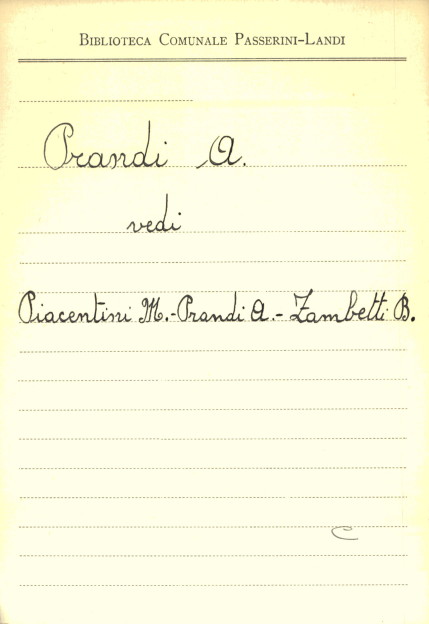 BIBLIOTECA COMUNALE PASSERINI-LANDI
Prandi A.
vedi
Piacentini M.-Prandi A.- Zambetti B.